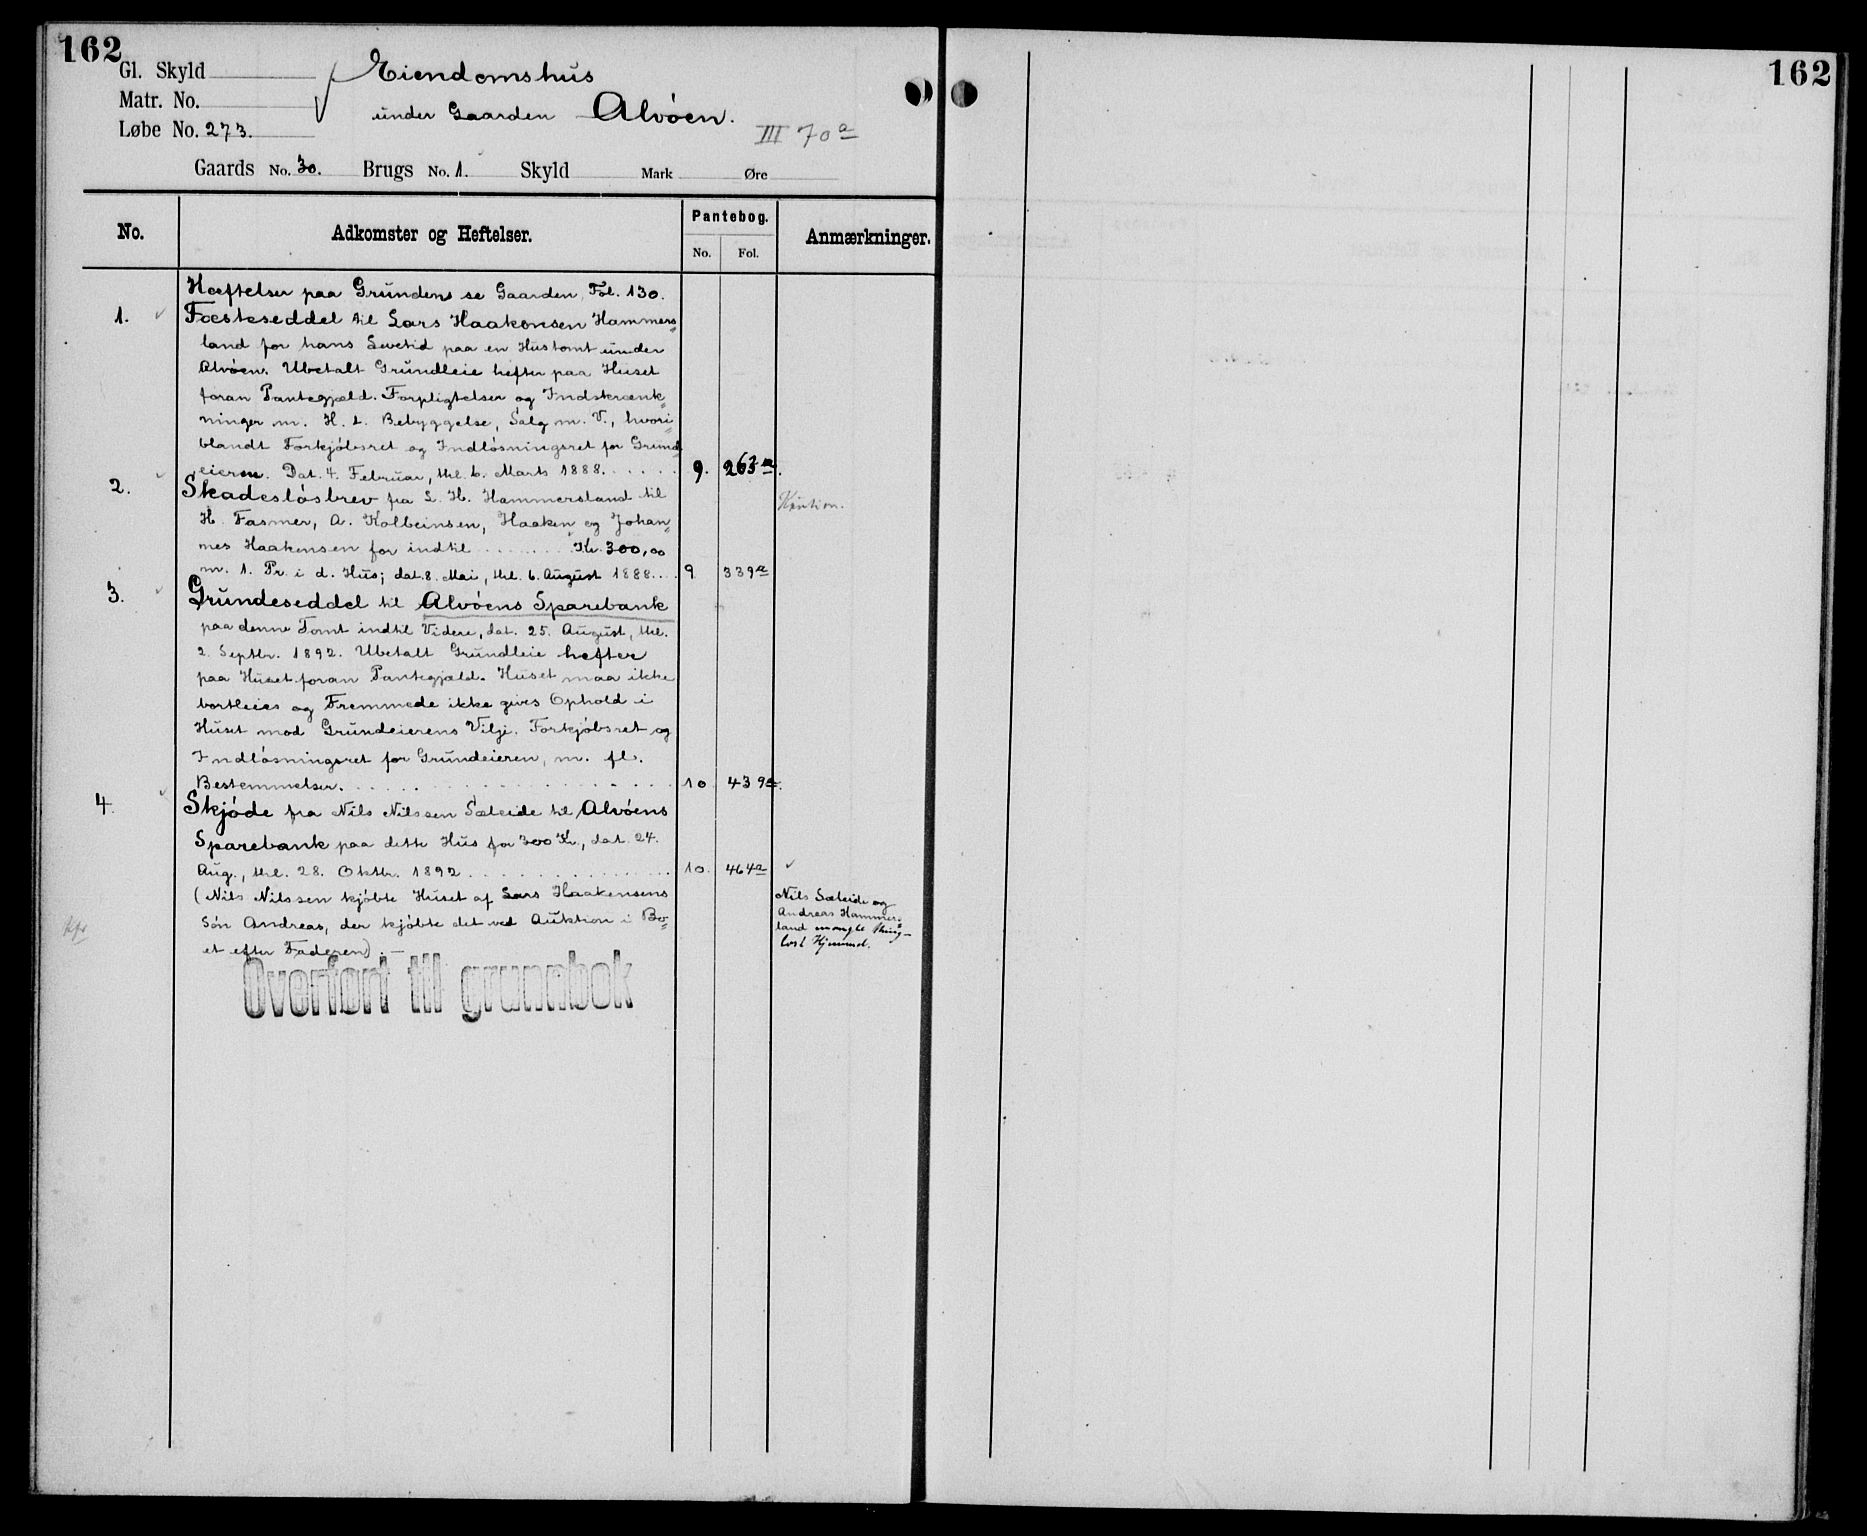 162
162
Gl. Skyld
Eiendomshus
Matr. No.
under Gaarden Alvöen.
Løbe No. 273.
III 70a
Gaards No. 30. Brugs No. 1. Skyld Mark Øre
No.
Adkomster og Heftelser.
Pantebog.
No. Fol.
Anmærkninger.
Hæftelser paa Grunden se Gaarden, Fol. 130.
1. Fæsteseddel til Lars Haakonsen Hammers=
land for hans Levetid paa en Hustomt under
Alvöen. Ubetalt Grundleie hefter paa Huset
foran Pantegjæld. Forpligtelser og Indskrænk=
ninger m. H. t. Bebyggelse, Salg m. V., hvori
blandt Forkjöbsret og Indlösningsret for Grund
eieren. Dat. 4. Februar, thl. 6. Marts 1888. 9. 263a.
2. Skadeslösbrev fra L. H. Hammersland til
Kaution.
H. Fasmer, A. Kolbeinsen, Haaken og Johan=
nes Haakensen for indtil Kr. 300,00
m. 1. Pr. i d. Hus; dat. 8. Mai, thl. 6. August 1888. 9 339a
3. Grundeseddel til Alvöens Sparebank
paa denne Tomt indtil Videre, dat. 25. August, thl.
2. Septbr. 1892. Ubetalt Grundleie hefter
paa Huset foran Pantegjæld. Huset maa ikke
bortleies og Fremmede ikke gives Ophold i
Huset mod Grundeierens Vilje. Forkjöbsret og
Indlösningsret for Grundeieren, m. fl.
Bestemmelser. 10 439a.
4. Skjöde fra Nils Nilssen Sæleide til Alvöens
Sparebank paa dette Hus for 300 Kr., dat. 24.
Aug., thl. 28. Oktbr. 1892 10. 464a
(Nils Nilssen kjöbte Huset af Lars Haakensens
Sön Andreas, der kjöbte det ved Auktion i Bo=
et efter Faderen). —
Nils Sæleide og
Andreas Hammers=
land mangle thing-
lyst Hjemmel.
Overført til grunnbok